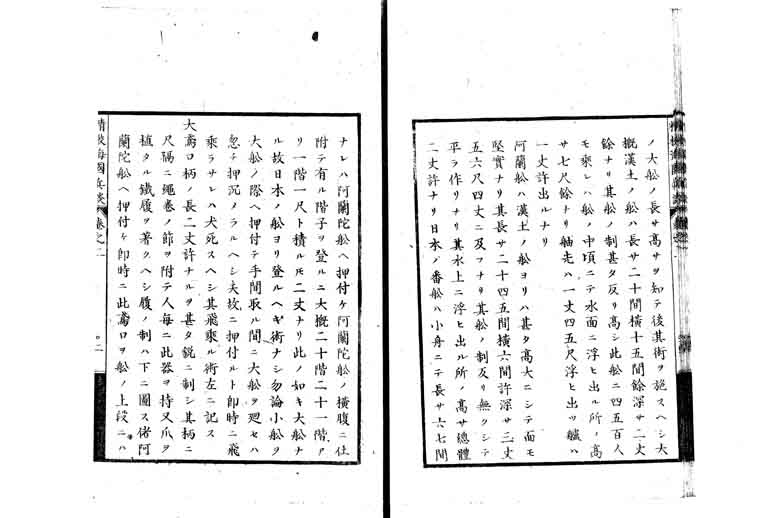 ノ大舩ノ長サ高サヲ知テ後其術ヲ施スヘシ大
概漢土ノ舩ハ長サ二十間横十五間餘深サ二丈
餘ナリ其舩ノ制甚タ反リ高シ此舩ニ四五百人
モ乘レハ舩ノ中頃ニテ水面ニ浮ヒ出ル所ノ高
サ七尺餘ナリ舳先ハ一丈四五尺浮ヒ出ツ艫ハ
一丈許出ルナリ
阿蘭舩ハ漢土ノ舩ヨリハ甚タ高大ニシテ而モ
堅實ナリ其長サ二十四五間横六間許深サ三丈
五六尺四丈ニ及フナリ其舩ノ制反リ無クシテ
平ラ作リナリ其水上ニ浮ヒ出ル所ノ高サ總體
二丈許ナリ日本ノ番舩ハ小舟ニテ長サ六七間
ナレハ阿蘭陀舩ヘ押付ケ阿蘭陀舩ノ横腹ニ仕
附テ有ル階子ヲ登ルニ大概二十階二十一階ア
リ一階一尺ト積ルモ二丈ナリ此ノ如キ大舩ナ
ル故日本ノ舩ヨリ登ルヘキ術ナシ勿論小舩ヲ
大舩ノ際ヘ押付テ手間取ル間ニ大舩ヲ廻セハ
忽チ押沉メラルヘシ夫故ニ押付ルト即時ニ飛
乘ラサレハ犬死スヘシ其飛乘ル術左ニ記ス
大鳶口ノ柄ノ長二丈許ナルヲ甚タ鋭ニ制シ其柄ニ
尺隔ニ繩卷ノ節ヲ附テ人毎ニ此器ヲ持又爪ヲ
植タル鐵履ヲ著クヘシ履ノ制ハ下ニ圖ス偖阿
蘭陀舩ヘ押付ケ即時ニ此鳶口ヲ舩ノ上段ニハ
精校海國兵談 卷之二